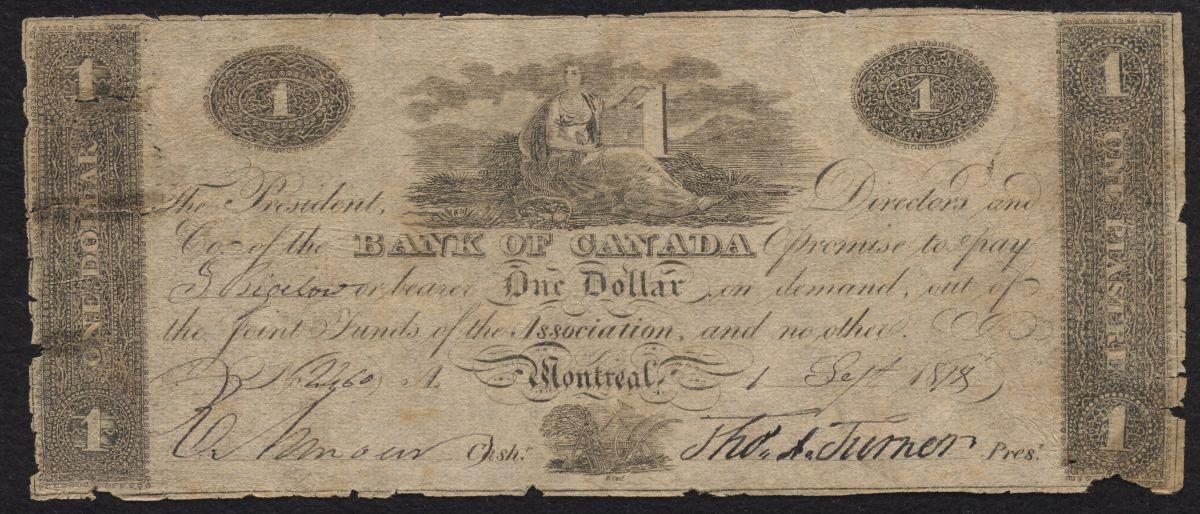 1 1 1 1
ONE DOLLAR
ONE PIASTRE
1
The President, Directors and
Co. of the BANK OF CANADA promise to pay
S. Bigelow or bearer One Dollar on demand, out of
the Joint Funds of the Association, and no other.
No 2260 At Montreal, 1 Sept 1818
R Armour Cashr. Tho. A. Turner Prest.
1 1